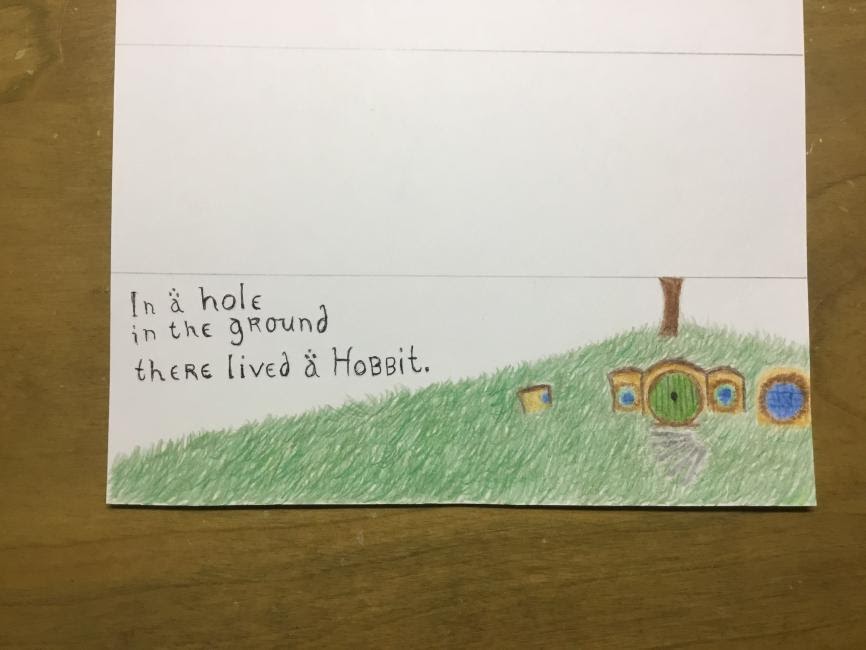 In ä hole
in the ground
there lived ä Hobbit.